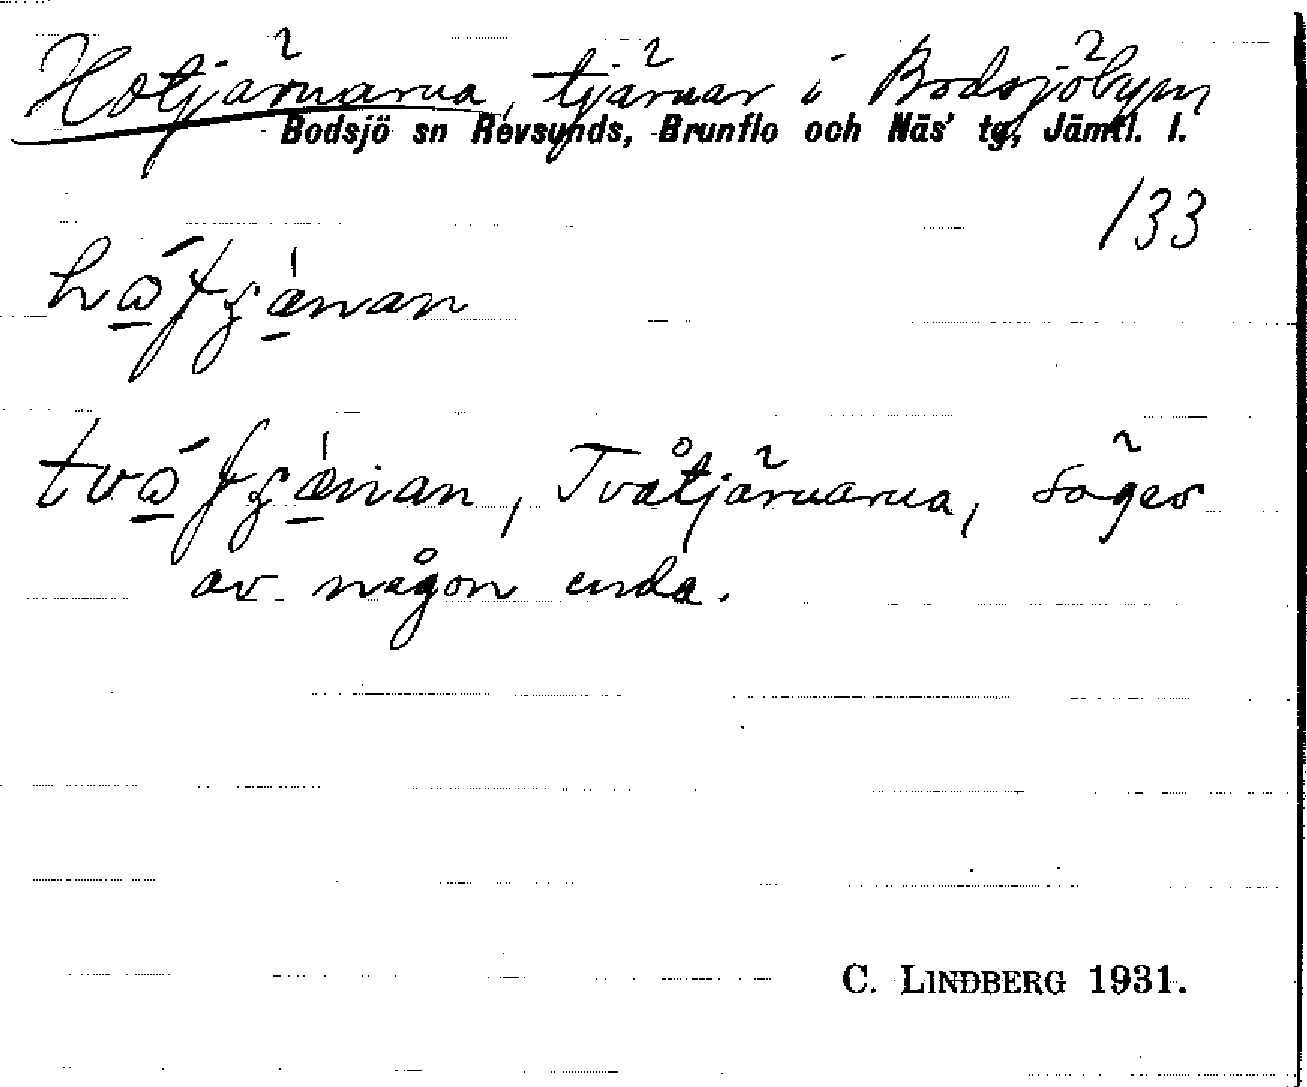 Hotjärnarna, tjärnar i Bodsjöbyn
Bodsjö sn Revsunds, Brunflo och Näs' tg, Jämtl. l.
133
Tvåtjärnarna, säges
av någon enda.
C. LINDBERG 1931.